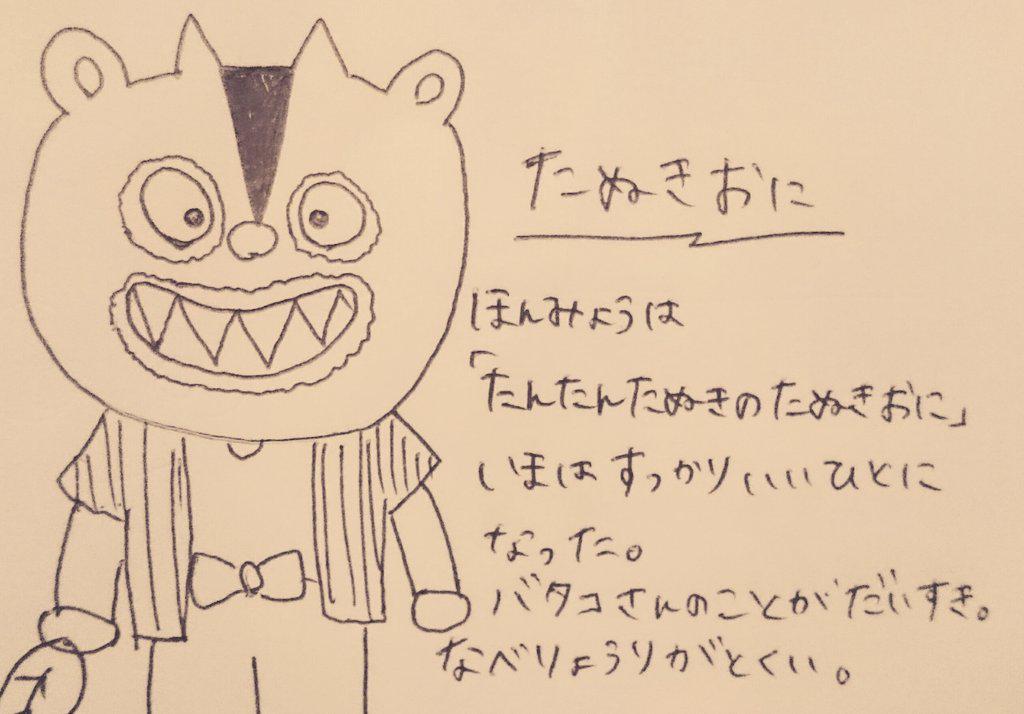 たぬきおに
ほんみょうは
「たんたんたぬきのたぬきおに」
いまはすっかりいいひとに
なった。
バタコさんのことがだいすき。
なべりょうりがとくい。